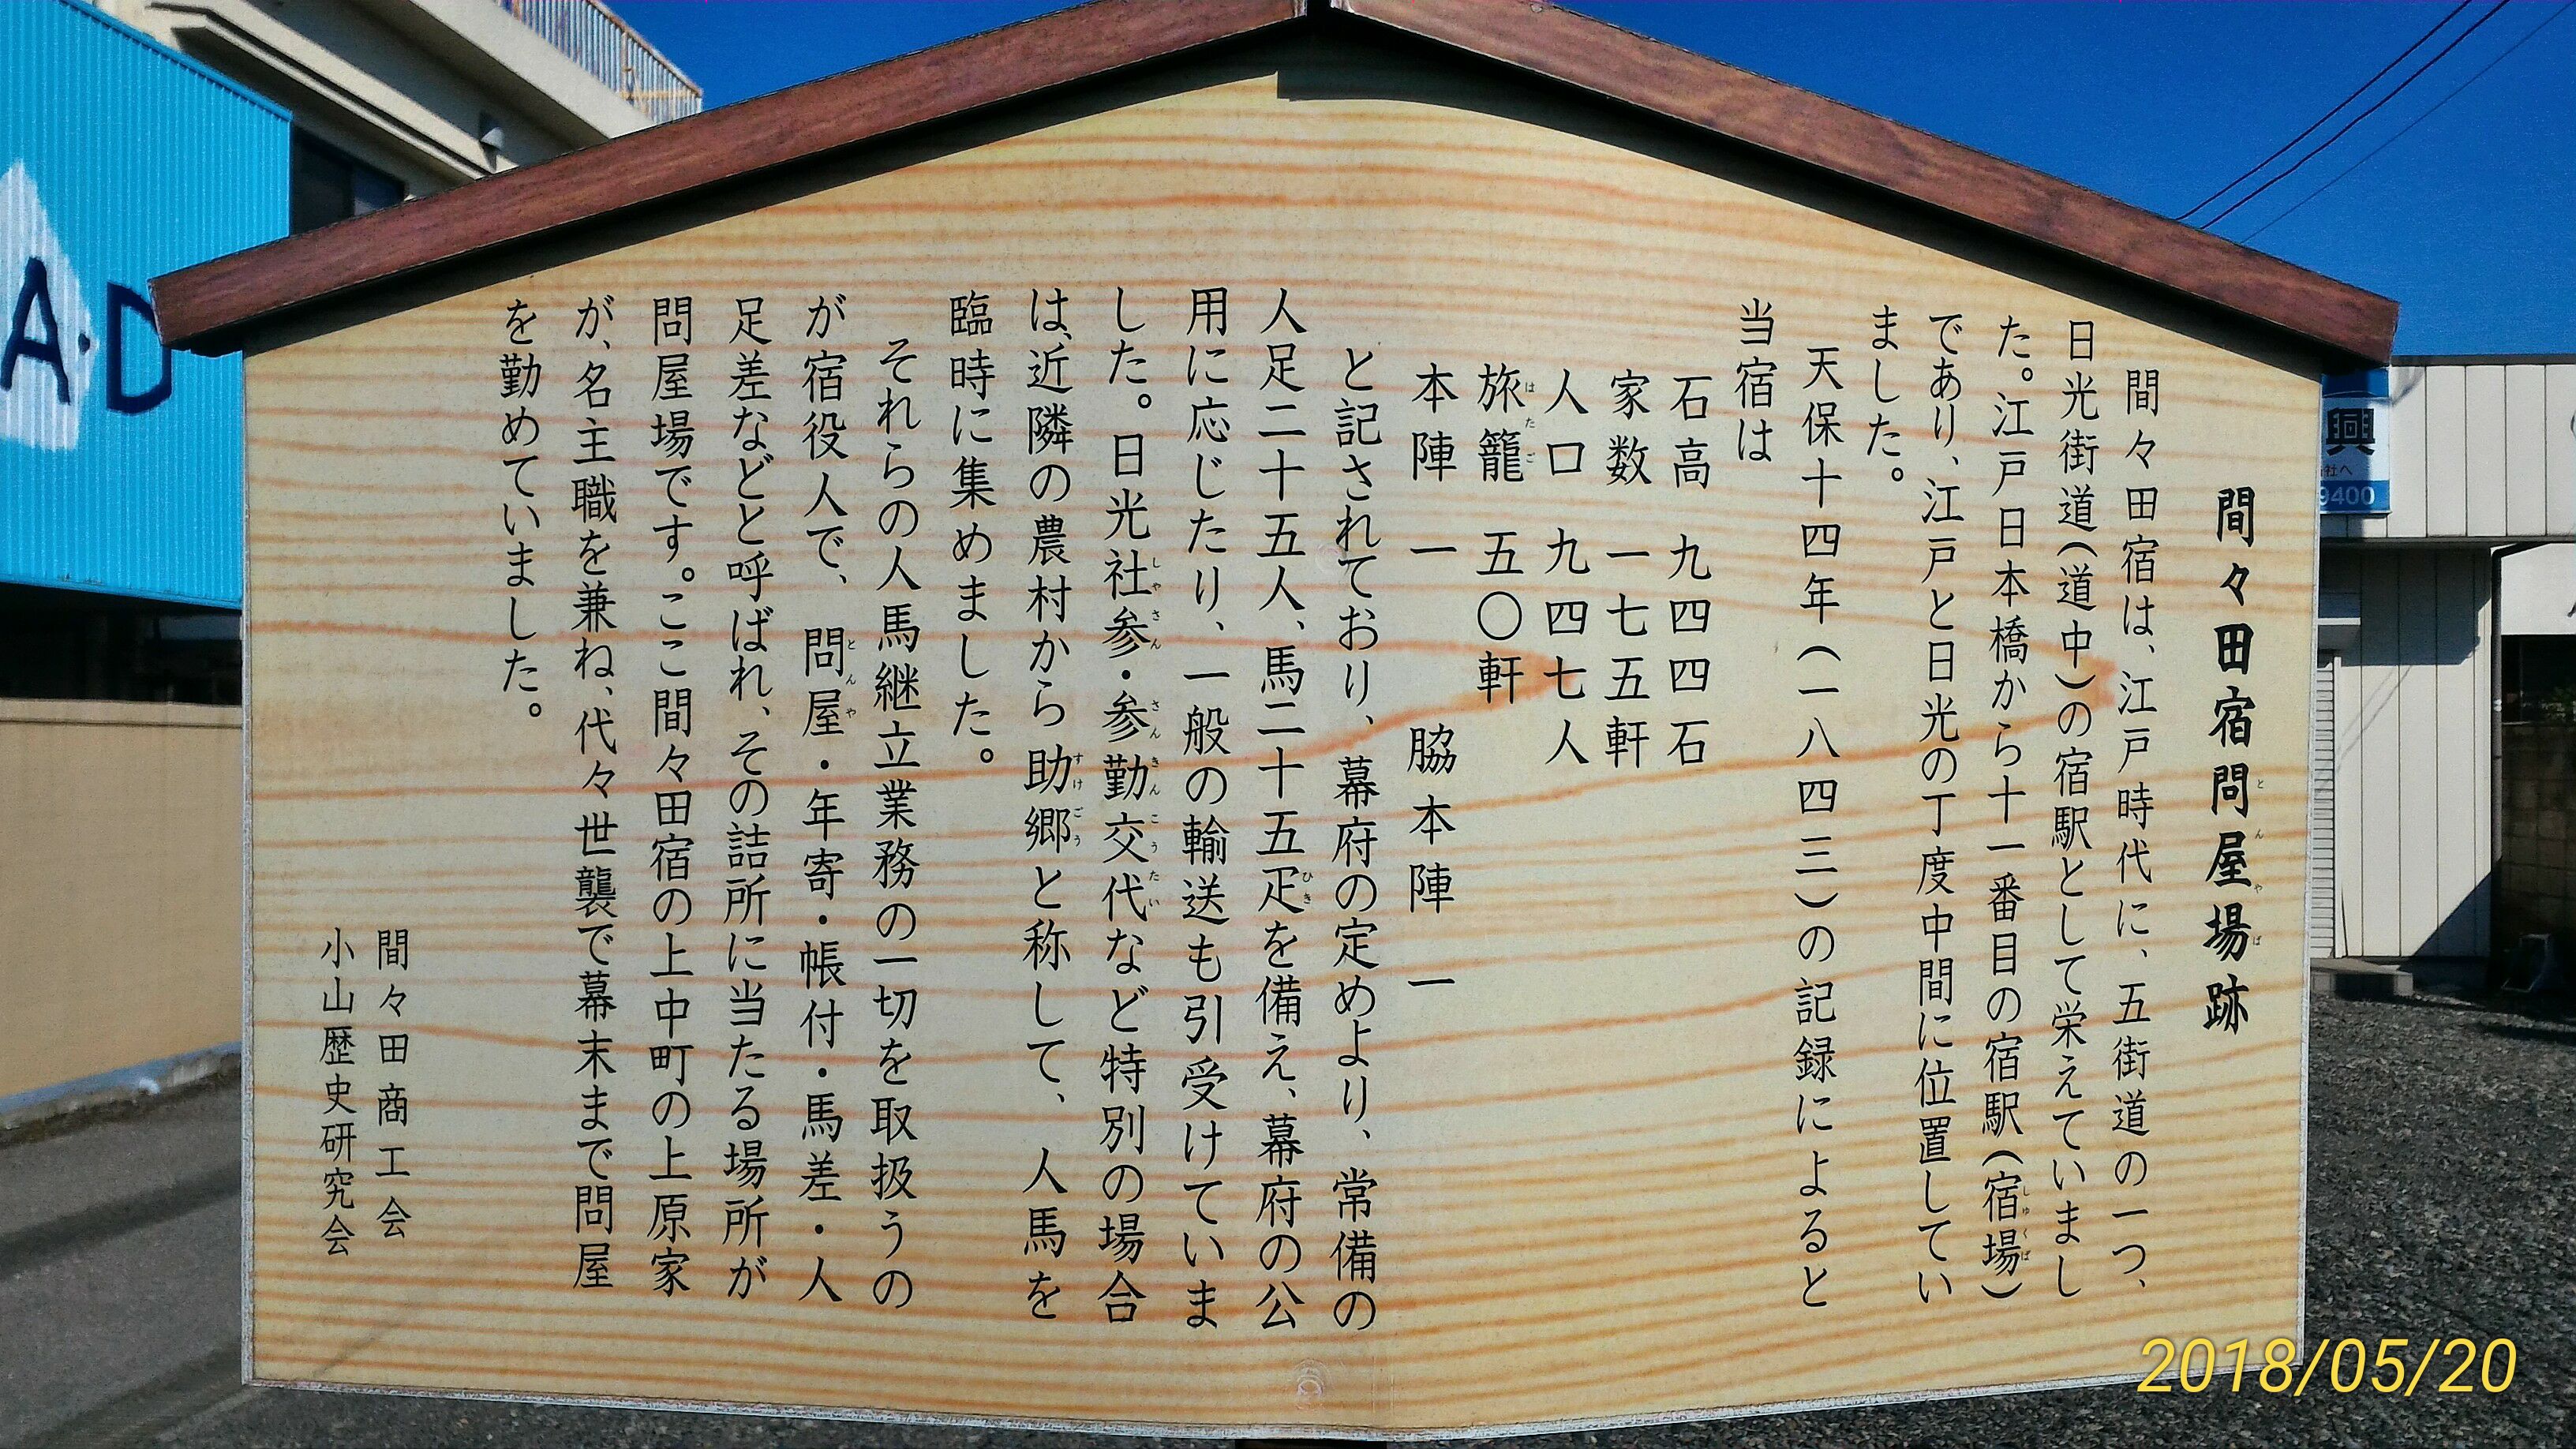 間々田宿問屋場跡
間々田宿は、江戸時代に、五街道の一つ、
日光街道(道中)の宿駅として栄えていまし
た。江戸日本橋から十一番目の宿駅(宿場)
であり、江戸と日光の丁度中間に位置してい
ました。
天保十四年(一八四三)の記録によると
当宿は
石高 九四四石
家数 一七五軒
人口 九四七人
旅籠 五〇軒
本陣 一 脇本陣 一
と記されており、幕府の定めより、常備の
人足二十五人、馬二十五疋を備え、幕府の公
用に応じたり、一般の輸送も引受けていま
した。日光社参・参勤交代など特別の場合
は、近隣の農村から助郷と称して、人馬を
臨時に集めました。
それらの人馬継立業務の一切を取扱うの
が宿役人で、問屋・年寄・帳付・馬差・人
足差などと呼ばれ、その詰所に当たる場所が
問屋場です。ここ間々田宿の上中町の上原家
が、名主職を兼ね、代々世襲で幕末まで問屋
を勤めていました。
間々田商工会
小山歴史研究会
A・D
興
社へ
9400
2018/05/20